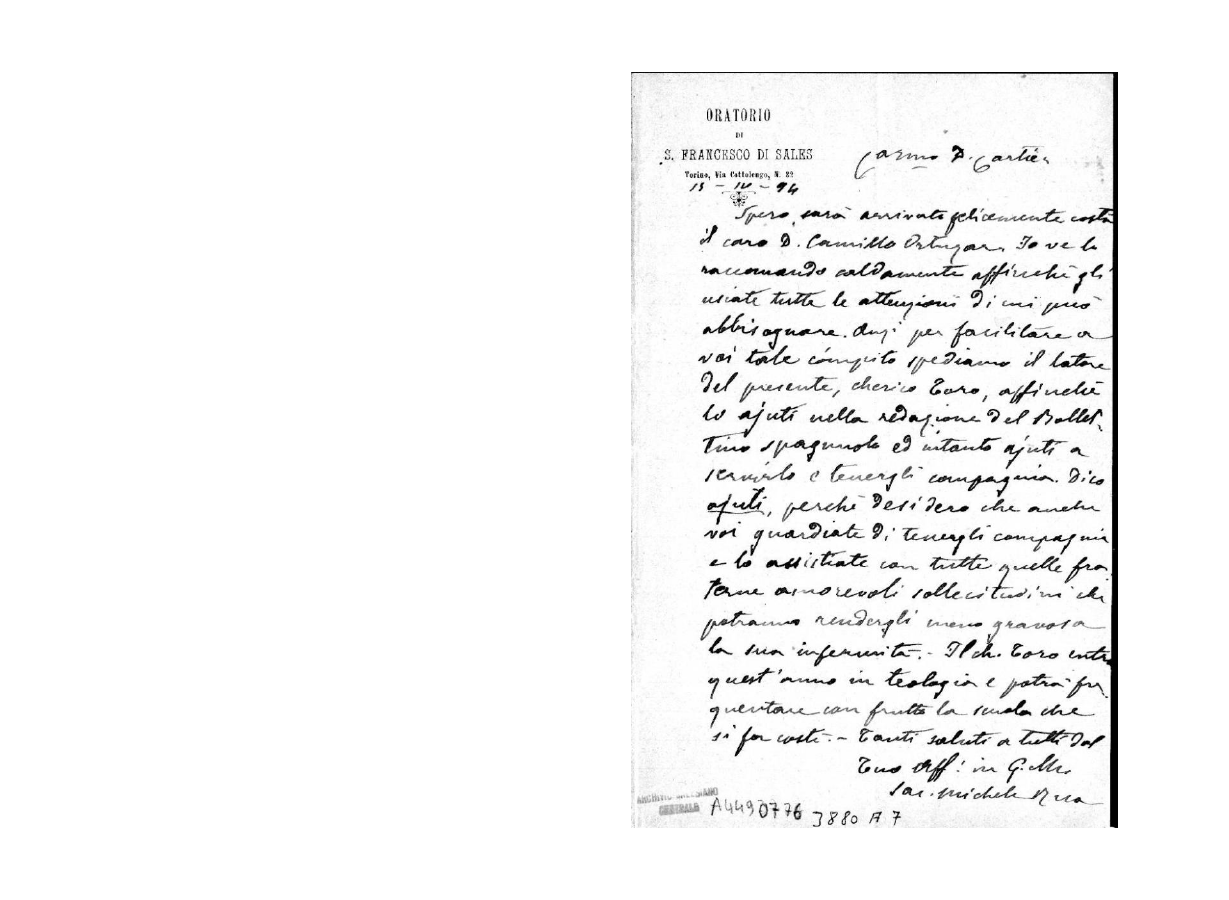 ORATORIO
DI
S. FRANCESCO DI SALES
Torino, Via Cottolengo, N. 32
15 - IV - 94
Carmo D. Cartier
Spero sarà arrivato felicemente costà
il caro D. Camillo Ortuzar. Io ve lo
raccomando caldamente affinchè gli
usiate tutte le attenzioni di cui può
abbisognare. Anzi per facilitare a
voi tale cómpito spediamo il latore
del presente, cherico Toro, affinchè
lo ajuti nella redazione del Bollet-
tino spagnuolo ed intanto ajuti a
servirlo e tenergli compagnia. Dico
ajuti, perchè desidero che anche
voi guardiate di tenergli compagnia
e lo assistiate con tutte quelle fra-
terne amorevoli sollecitudini che
potranno rendergli meno gravosa
la sua infermità. - Il ch. Toro entra
quest'anno in teologia e potrà fre-
quentare con frutto la scuola che
si fa costì. - Tanti saluti a tutti dal
Tuo Aff. in G. e M.
Sac. Michele Rua
ARCHIVIO SALESIANO
CENTRALE
A4490776
3880 A 7